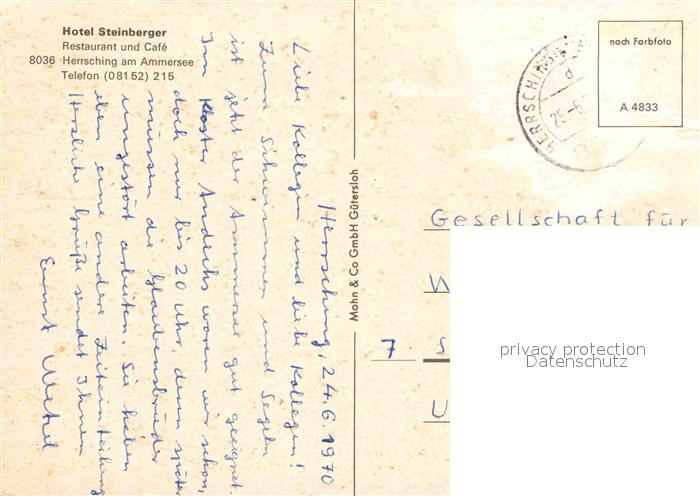 Hotel Steinberger
Restaurant und Café
8036 Herrsching am Ammersee
Telefon (08152) 215
Herrsching, 24.6.1970
Liebe Kollegin und liebe Kollegen!
Zum Schwimmen und Segeln
ist jetzt der Ammersee gut geeignet.
Im Kloster Andechs waren wir schon,
doch nur bis 20 Uhr, denn später
müssen die Glaubensbrüder
ungestört arbeiten. Sie haben
eben eine andere Zeiteinteilung
Herzliche Grüße sendet Ihnen
Ernst
Mohn & Co GmbH Gütersloh
HERRSCHING
d
nach Farbfoto
A 4833
Gesellschaft für
7
privacy protection
Datenschutz